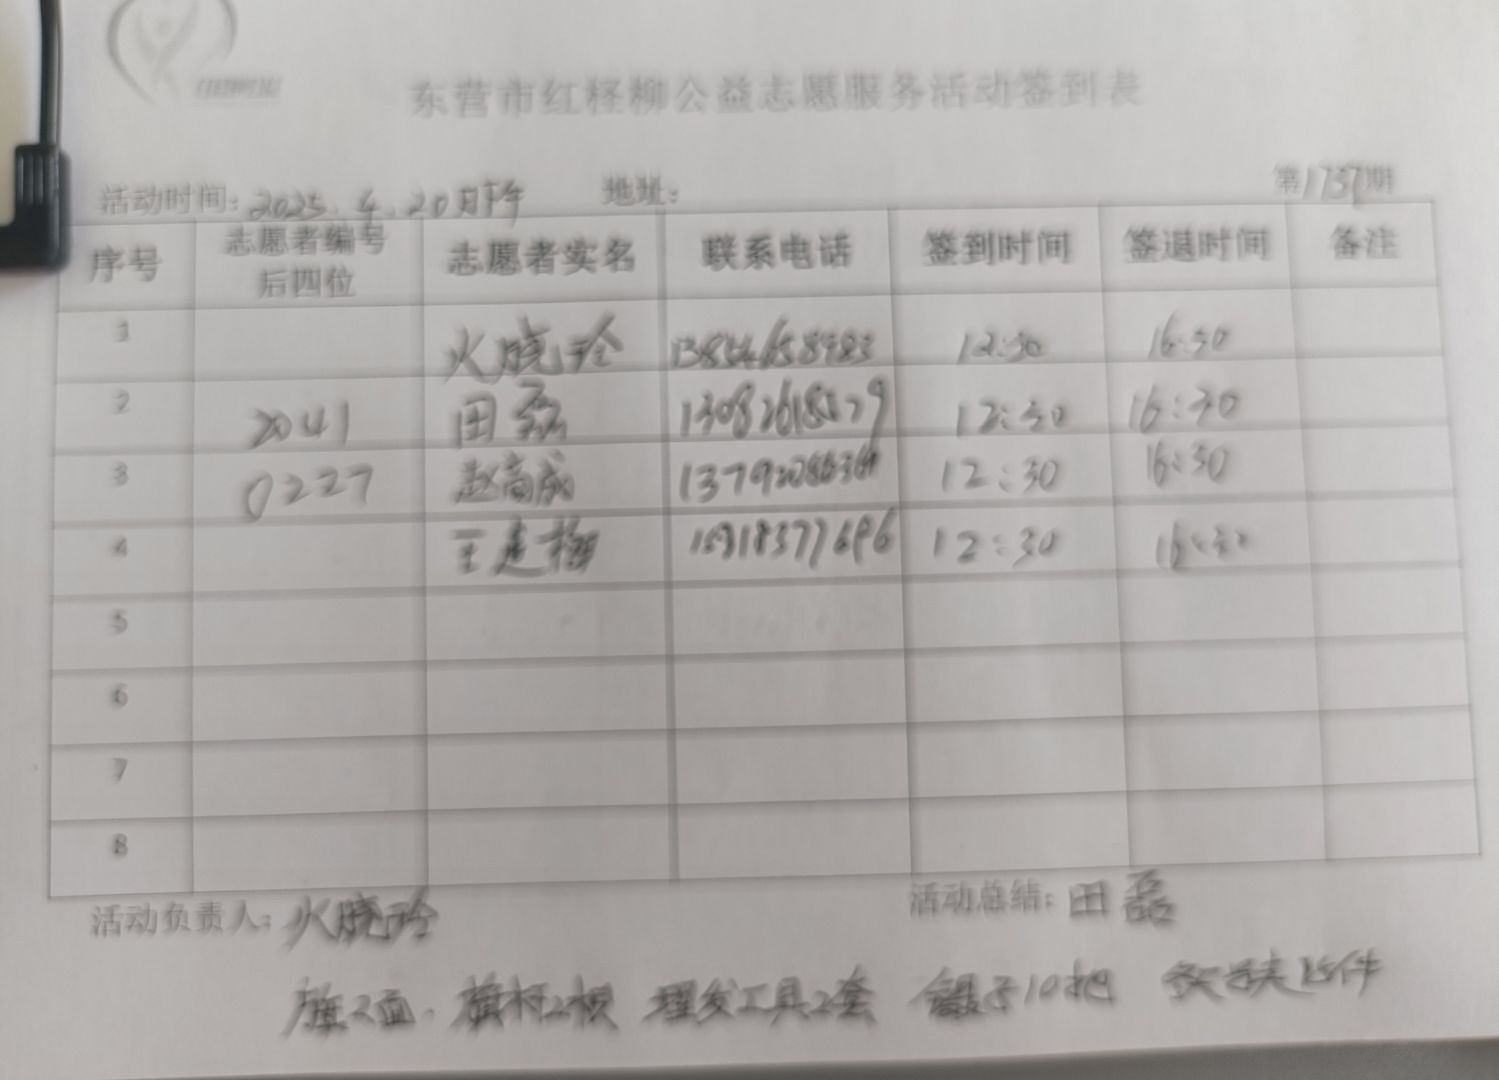 东营市红柽柳公益志愿服务活动签到表
活动时间: 2025.4.20日下午 地址: 第1737期
序号 志愿者编号后四位 志愿者实名 联系电话 签到时间 签退时间 备注
1 火晓玲 12:30 16:30
2 2041 田磊 12:30 16:30
3 0227 赵高成 12:30 16:30
4 王建梅 12:30 16:30
5
6
7
8
活动负责人: 火晓玲 活动总结: 田磊
旗2面. 旗杆2根 理发工具2套 10把 15件